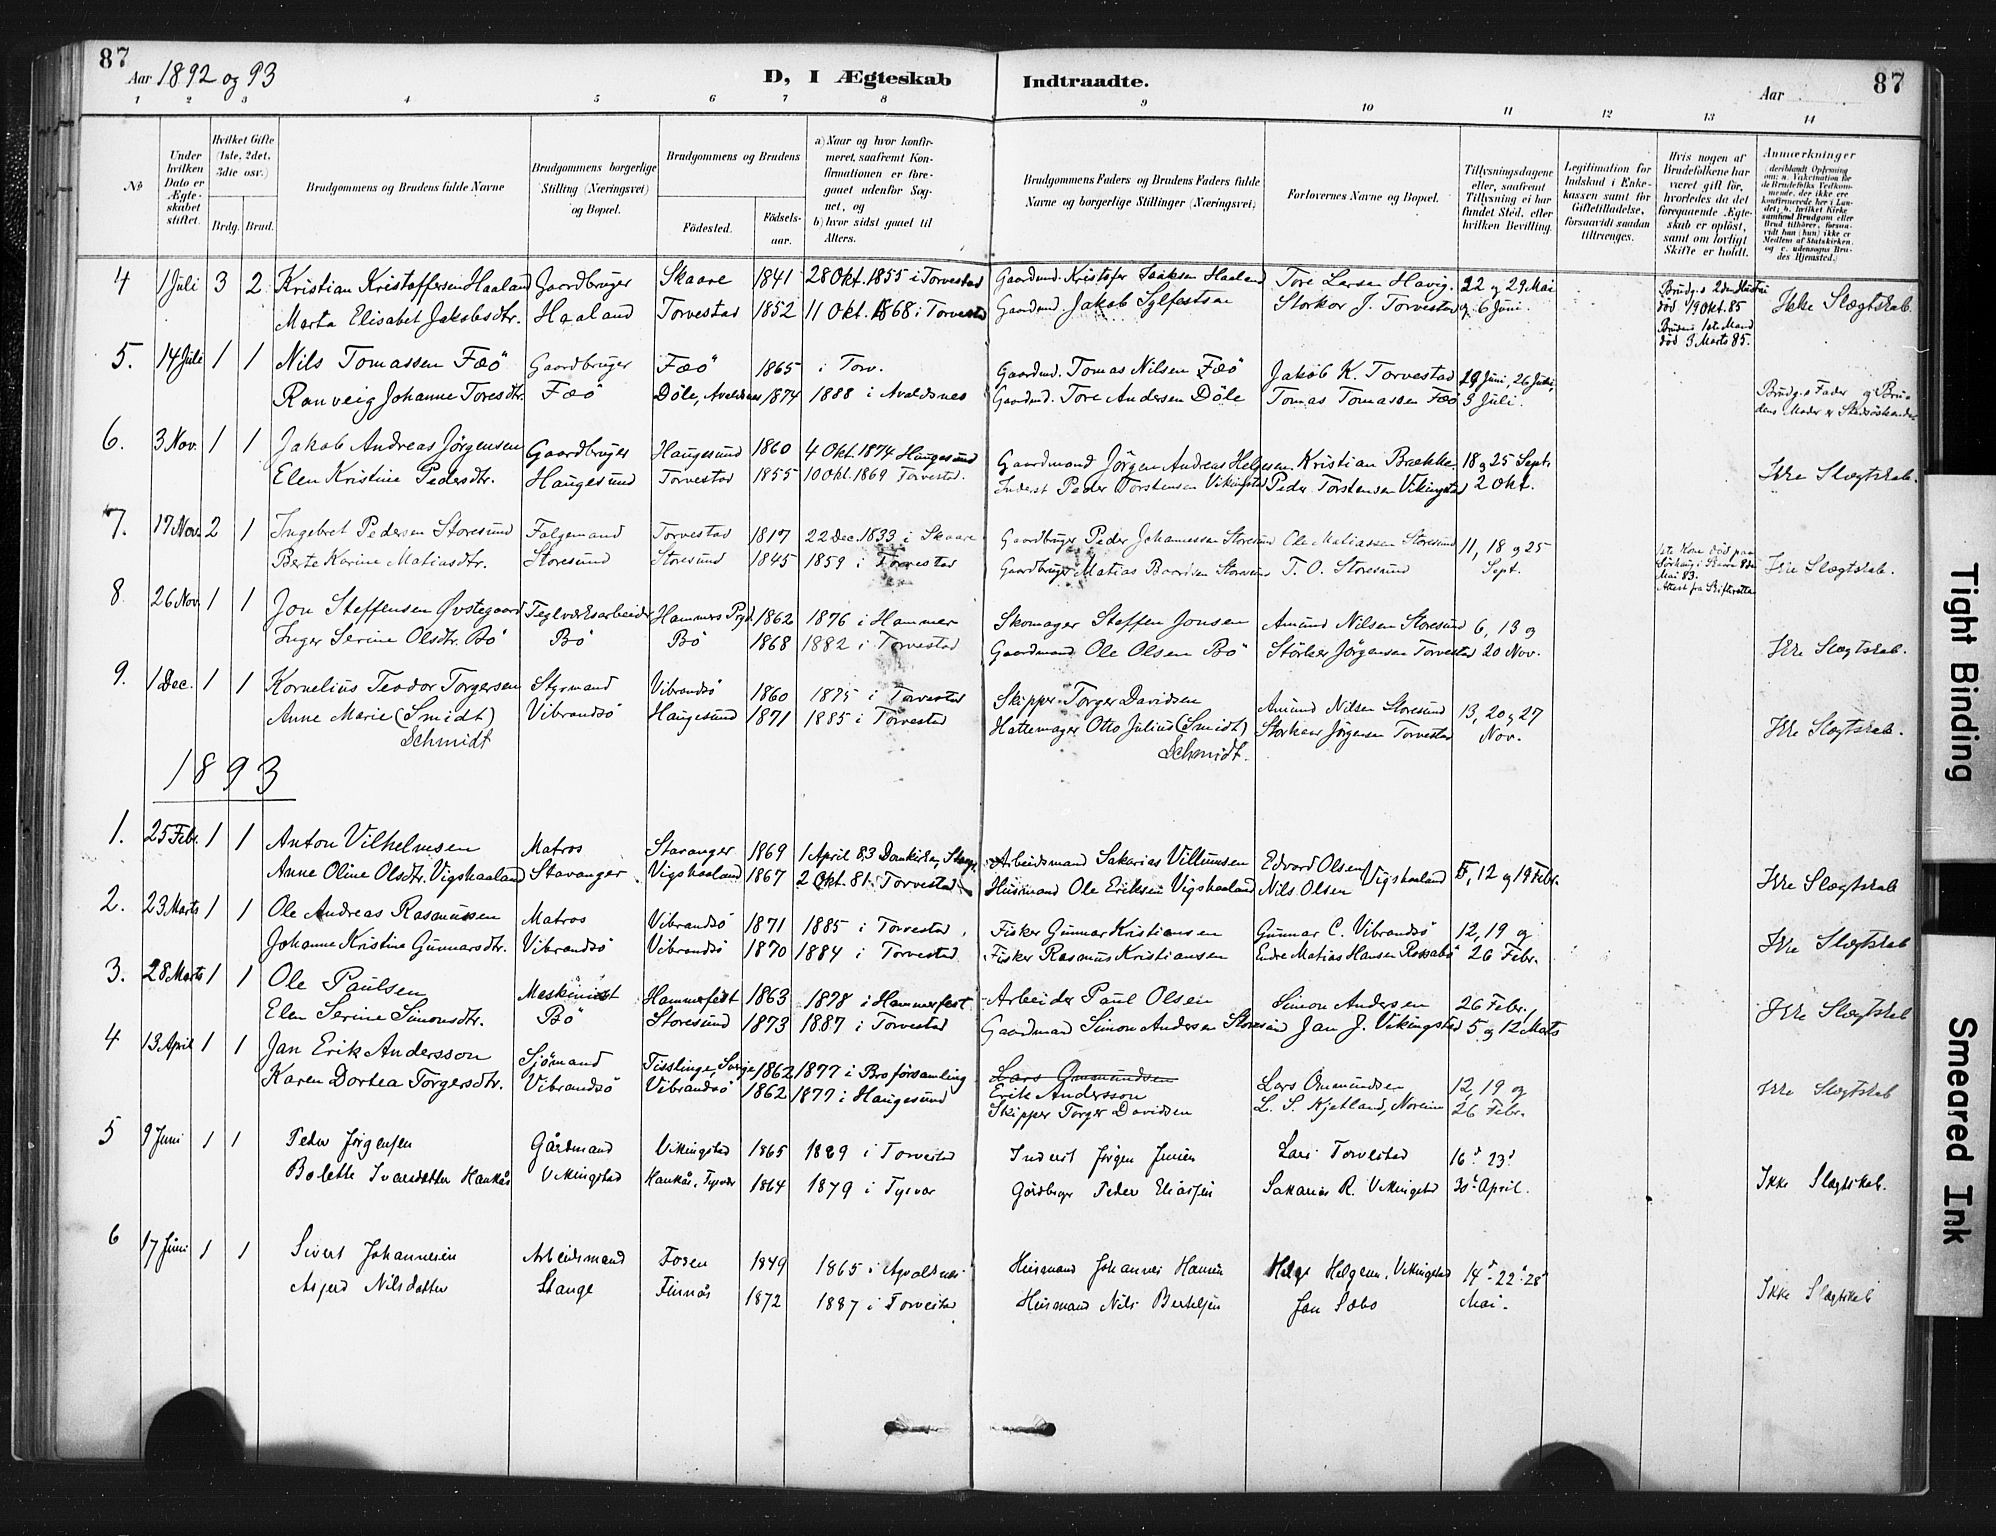 87
Aar 1892 og 93
D, I Ægteskab Indtraadte.
Aar
87
1 2 3 4 5 6 7 8 9 10 11 12 13 14
No
Under hvilken Dato er Ægteskabet stiftet.
Hvilket Gifte (1ste, 2det, 3die osv.)
Brdg. Brud.
Brudgommens og Brudens fulde Navne
Brudgommens borgerlige Stilling (Næringsvei) og Bopæl.
Brudgommens og Brudens
Födested.
Födselsaar.
a) Naar og hvor konfirmeret, saafremt Konfirmationen er foregaaet udenfor Sognet, og
b) hvor sidst gaaet til Alters.
Brudgommens Faders og Brudens Faders fulde Navne og borgerlige Stillinger (Næringsvei)
Forlovernes Navne og Bopæl.
Tillysningsdagene eller, saafremt Tillysning ei har fundet Sted, efter hvilken Bevilling.
Legitimation for Indskud i Enkekassen samt for Giftetilladelse, forsaavidt saadan tiltrænges.
Hvis nogen af Brudefolkene har været gift för, hvorledes da det foregaaende Ægteskab er oplöst, samt om lovligt Skifte er holdt.
Anmærkninger
4 1 Juli 3 2 Kristian Kristoffersen Haaland Gaardbruger Skaare 1841 28 Okt. 1855 i Torvestad Gaardmd. Kristofer Isaksen Haaland Tore Larsen Havig. 22 og 29 Mai Brudg.s 2den Hustru
Marta Elisabet Jakobsdtr. Haaland Torvestad 1852 11 Okt. 1868 i Torvestad Gaardmd. Jakob Sylfestsen Storkor J. Torvestad og 6 Juni. död 19 Okt. 85 Ikke Slægtskab.
Brudens 1ste Mand
död 3 Marts 85.
5. 14 Juli 1 1 Nils Tomassen Fæö Gaardbruger Fæö 1865 i Torv. Gaardmd. Tomas Nilsen Fæö Jakob K. Torvestad 19 Juni, 26 Juni,
Ranveig Johanne Toresdtr. Fæö Döle, Avaldsnes 1874 1888 i Avaldsnes Gaardmd. Tore Andersen Döle Tomas Tomassen Fæö 3 Juli. Brudg.s Fader og Brudens Moder er
6. 3 Nov. 1 1 Jakob Andreas Jörgensen Gaardbruger Haugesund 1860 4 Okt. 1874 Haugesund Gaardmand Jörgen Andreas Helgesen. Kristian Brække 18 og 25 Sept.
Elen Kristine Pedersdtr. Haugesund Torvestad 1855 10 Okt. 1869 Torvestad. Inderst Peder Torstensen Vikingstad Peder Torstensen Vikingstad 2 Okt. Ikke Slægtskab.
7. 17 Nov. 2 1 Ingebret Pedersen Storesund Folgemand Torvestad 1817 22 Dec. 1833 i Skaare Gaardbruger Peder Johannessen Storesund Ole Matiassen Storesund 11, 18 og 25
Berte Karine Matiasdtr. Storesund Storesund 1845 1859 i Torvestad Gaardbruger Matias Storesund T. O. Storesund Sept. Ikke Slægtskab.
Mai 83.
8 26 Nov. 1 1 Jon Steffensen Övstegaard Teglværksarbeider Hammers Prgd. 1862 1876 i Hammer Skomager Steffen Jonsen Amund Nilsen Storesund 6, 13 og
Inger Serine Olsdtr. Bö Bö Bö 1868 1882 i Torvestad Gaardmand Ole Olsen Bö Störker Jörgensen Torvestad 20 Nov. Ikke Slægtskab.
9. 1 Dec. 1 1 Kornelius Teodor Torgersen Styrmand Vibrandsö 1860 1875 i Torvestad Skipper Torger Davidsen Amund Nilsen Storesund 13, 20 og 27
Anne Marie (Smidt) Vibrandsö Haugesund 1871 1885 i Torvestad Hattemager Otto Julius (Smidt) Störker Jörgensen Torvestad Nov. Ikke Slægtskab.
Schmidt Schmidt.
1893
1. 25 Febr. 1 1 Anton Vilhelmsen Matros Stavanger 1869 1 April 83 Domkirken, Stavgr. Arbeidsmand Sakarias Villumsen Edvard Olsen
Anne Oline Olsdtr. Vigshaaland Stavanger Vigshaaland 1867 2 Okt. 81. Torvestad Husmand Ole Eriksen Vigshaaland Nils Olsen Vigshaaland 5, 12 og 19 Febr. Ikke Slægtskab
2. 23 Marts 1 1 Ole Andreas Rasmussen Matros Vibrandsö 1871 1885 i Torvestad. Fisker Gunnar Kristiansen Gunnar C. Vibrandsö 12, 19 og
Johanne Kristine Gunnarsdtr. Vibrandsö Vibrandsö 1870 1884 i Torvestad. Fisker Rasmus Kristiansen Endre Matias Hansen Röksabö 26 Febr. Ikke Slægtskab
3. 28 Marts 1 1 Ole Paulsen Maskinist Hammerfest 1863 1878 i Hammerfest Arbeider Paul Olsen Simon Andersen 26 Febr.,
Elen Serine Simonsdtr. Bö Storesund 1873 1887 i Torvestad Gaardmand Simon Andersen Storesund Jan J. Vikingstad 5 og 12 Marts Ikke Slægtskab
4 13 April 1 1 Jan Erik Andersson Sjömand Tisslinge, Sverige 1862 1877 i Bro församling Lars Ommundsen
Karen Dortea Torgersdtr. Vibrandsö Vibrandsö 1862 1877 i Haugesund Erik Andersson Lars Ommundsen 12, 19 og
Skipper Torger Davidsen L. S. Kjetland, Noreim 26 Febr. Ikke Slægtskab
5 9 Juni 1 1 Peder Jörgensen Gårdmand Vikingstad 1865 1889 i Torvestad Inderst Jörgen Jensen Lars Torvestad 16' 23'
Bolette Ivarsdatter Haukås Vikingstad Haukås, Tysvær 1864 1879 i Tysvær Gårdbrger Peder Eliassen Sakarias R. Vikingstad 30' April. Ikke Slægtskab.
6 17 Juni 1 1 Sivert Johannesen Arbeidsmand Fosen 1849 1865 i Avaldsnes Husmand Johannes Hansen Helge Helgesen, Vikingstad 14' - 22' - 28'
Asgerd Nilsdatter Stange Finnås 1872 1887 i Torvestad Husmand Nils Bertelsen Jan Sæbö Mai. Ikke Slægtskab
Tight Binding
Smeared Ink